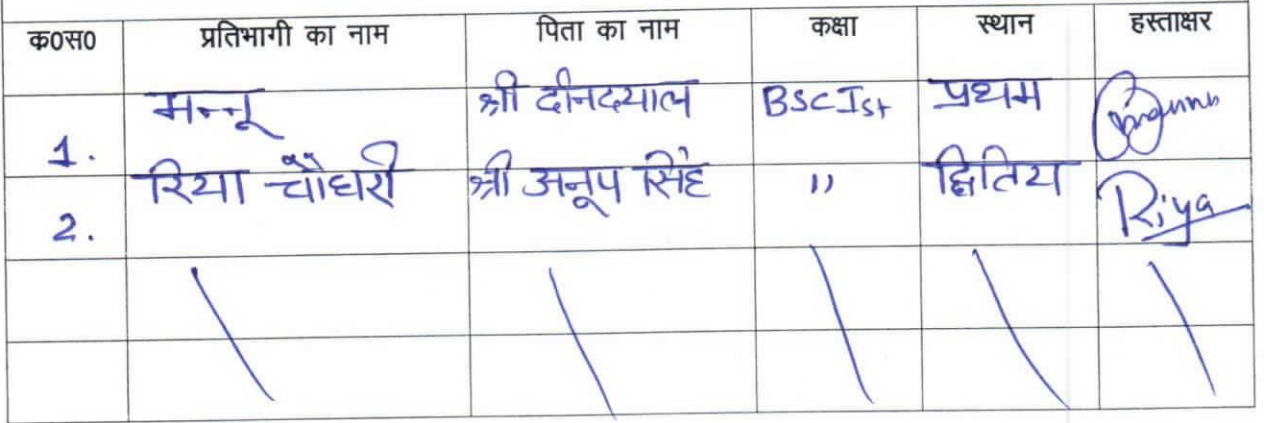 क0स0 प्रतिभागी का नाम पिता का नाम कक्षा स्थान हस्ताक्षर
1. मन्नू श्री दीनदयाल BSC Ist प्रथम
2. रिया चौधरी श्री अनूप सिंह " द्वितिय Riya